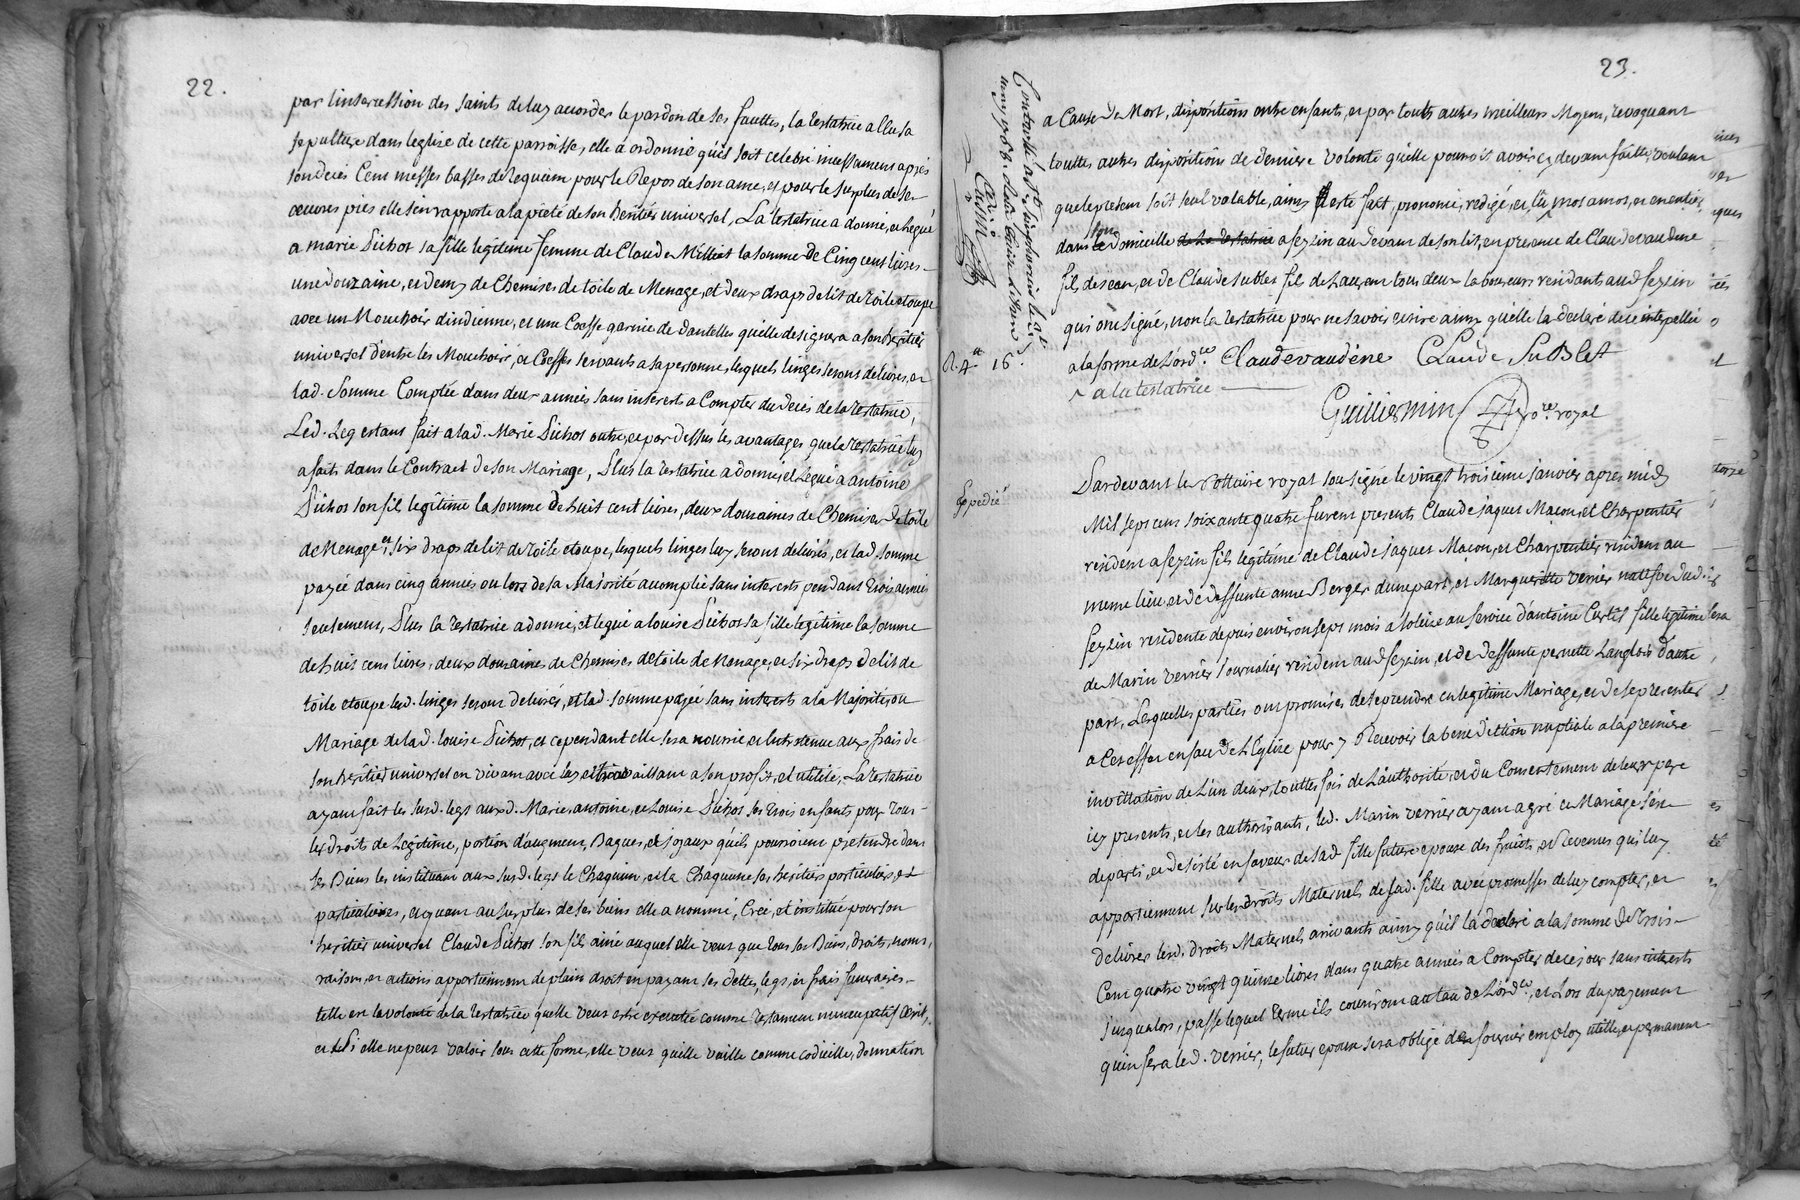 22.
par linsercession des saints de luy accorder le pardon de ses fauttes, la testatrice a élu sa
sepulture dans leglise de cette parroisse, elle a ordonné qu'il soit celebré incessament après
son decés Cent messes basses de Requiem pour le Repos de son ame, et pour le surplus de ses
oeuvres pies elle s'en rapporte a la pieté de son heritier universel, La testatrice a donné, et legué
a marie Pichot sa fille legitime femme de Claude Milliat la somme de Cinq cent livres
une douzaine, et demy de Chemises de toile de Menage, et deux draps de lit de toile etoupe
avec un Mouchoir d'indienne, et une Coesse garnie de dantelles qu'elle designera a son heritier
universel d'entre les Mouchoirs, et Coesses servants a sa personne, lesquels linges seront delivrés, et
lad. somme Comptée dans deux années sans interests a Compter du decés de la testatrice,
Led. Leg estant fait a lad. Marie Pichot outre, et par dessus les avantages que la testatrice luy
a faits dans le Contract de son Mariage, Plus la testatrice a donné, et Legué a antoine
Pichot son fil legitime la somme de huit cent livres, deux douzaines de Chemises de toile
de Menage, et six draps de lit de toile etoupe, lesquels linges luy seront delivrés, et lad. somme
payée dans cinq années ou lors de sa Majorité accomplie sans interests pendant trois années
seulement, Plus la testatrice a donné, et legué a louise Pichot sa fille legitime la somme
de huit cens livres, deux douzaines de Chemises de toile de Menage, et six draps de lit de
toile etoupe led. linges seront delivrés, et lad. somme payée sans interests a la Majorité, ou
Mariage de lad. louise Pichot, et cependant elle sera nourrie et entretenue aux frais de
son heritier universel en vivant avec luy et travaillant a son profit, et utilité, La testatrice
ayant fait les susd. legs auxd. Marie, antoine, et Louise Pichot ses trois enfants pour tous
les droits de Légitime, portion d'augment, Bagues, et joyaux qu'ils pourroient pretendre dans
ses Biens les instituant aux susd. legs le Chaquun, et la Chaquune ses héritiers particuliers, et
particulieres, et quant au surplus de ses biens elle a nommé, Créé, et institué pour son
heritier universel Claude Pichot son fil ainé auquel elle veut que tous ses Biens, droits, noms,
raisons, et actions appartiennent de plain droit en payant ses dettes, legs, et frais funeraires
telle est la volonté de la testatrice qu'elle veut estre executée comme testament nuncupatif écrit,
et si elle ne peut valoir sous cette forme, elle veut qu'elle vaille comme codicille, donnation
23.
Controllé a St Simphorien le
Reçu
R. 4 16.
a Cause de Mort, dispositions entre enfants, et par touts autres meilleurs Moyens, revoquant
touttes autres dispositions de derniere volonté qu'elle pourroit avoir cy devant faittes, voulant
que le present soit seul valable, ainsy esté fait, prononcé, redigé, et lû mos amos, et en entier,
dans son domicille de la testatrice a feyzin au devant de son lit, en presence de Claude vaudene
fil de jean, et de Claude sublet fil de Laurent tous deux laboureurs residants aud. feyzin
qui ont signé, non la testatrice pour ne savoir ecrire ainsy qu'elle la declaré de ce interpellée
a la forme de l'ord.ce Claude vaudène Claude SuBlet
^ a la testatrice
Guillermin nore. royal
Expedié
Pardevant le Nottaire royal soussigné le vingt troisieme janvier apres midy
Mil sept cent soixante quatre furent presents Claude jaques Macon, et Charpentier
resident a feyzin fil legitime de Claude jaques Macon, et Charpentier resident au
meme lieu, et de deffunte anne Berger d'une part, et Marguerite verrier natifve dud.
feyzin residente depuis environ sept mois a soleize au service d'antoine Curtil fille legitime
de Marin verrier journalier resident aud. feyzin, et de deffunte pernette Langlois d'autre
part, Lesquelles parties ont promises de se prendre en legitime Mariage, et de se presenter
a Cet effet en face de L'Eglise pour y Recevoir la benediction nuptiale a la premiere
invittation de L'un d'eux, touttes fois de L'authorité, et du Consentement de leurs pere
icy presents, et les authorisants, led. Marin verrier ayant agré ce Mariage s'est
departi, et desisté en faveur de sad. fille future epouse des fruits, et Revenus qui luy
appartiennent sur les droits Maternels de sad. fille avec promesses de luy compter, et
delivrer lesd. droits Maternels arrivants ainsy qu'il la declaré a la somme de trois
Cent quatre vingt quinze livres dans quatre années a Compter de ce jour sans interests
jusqu'alors, passé lequel terme ils courront au tau de L'ord.ce, et Lors du payement
qu'en fera led. verrier, le futur epoux sera obligé d'en fournir employ utille, et permanent